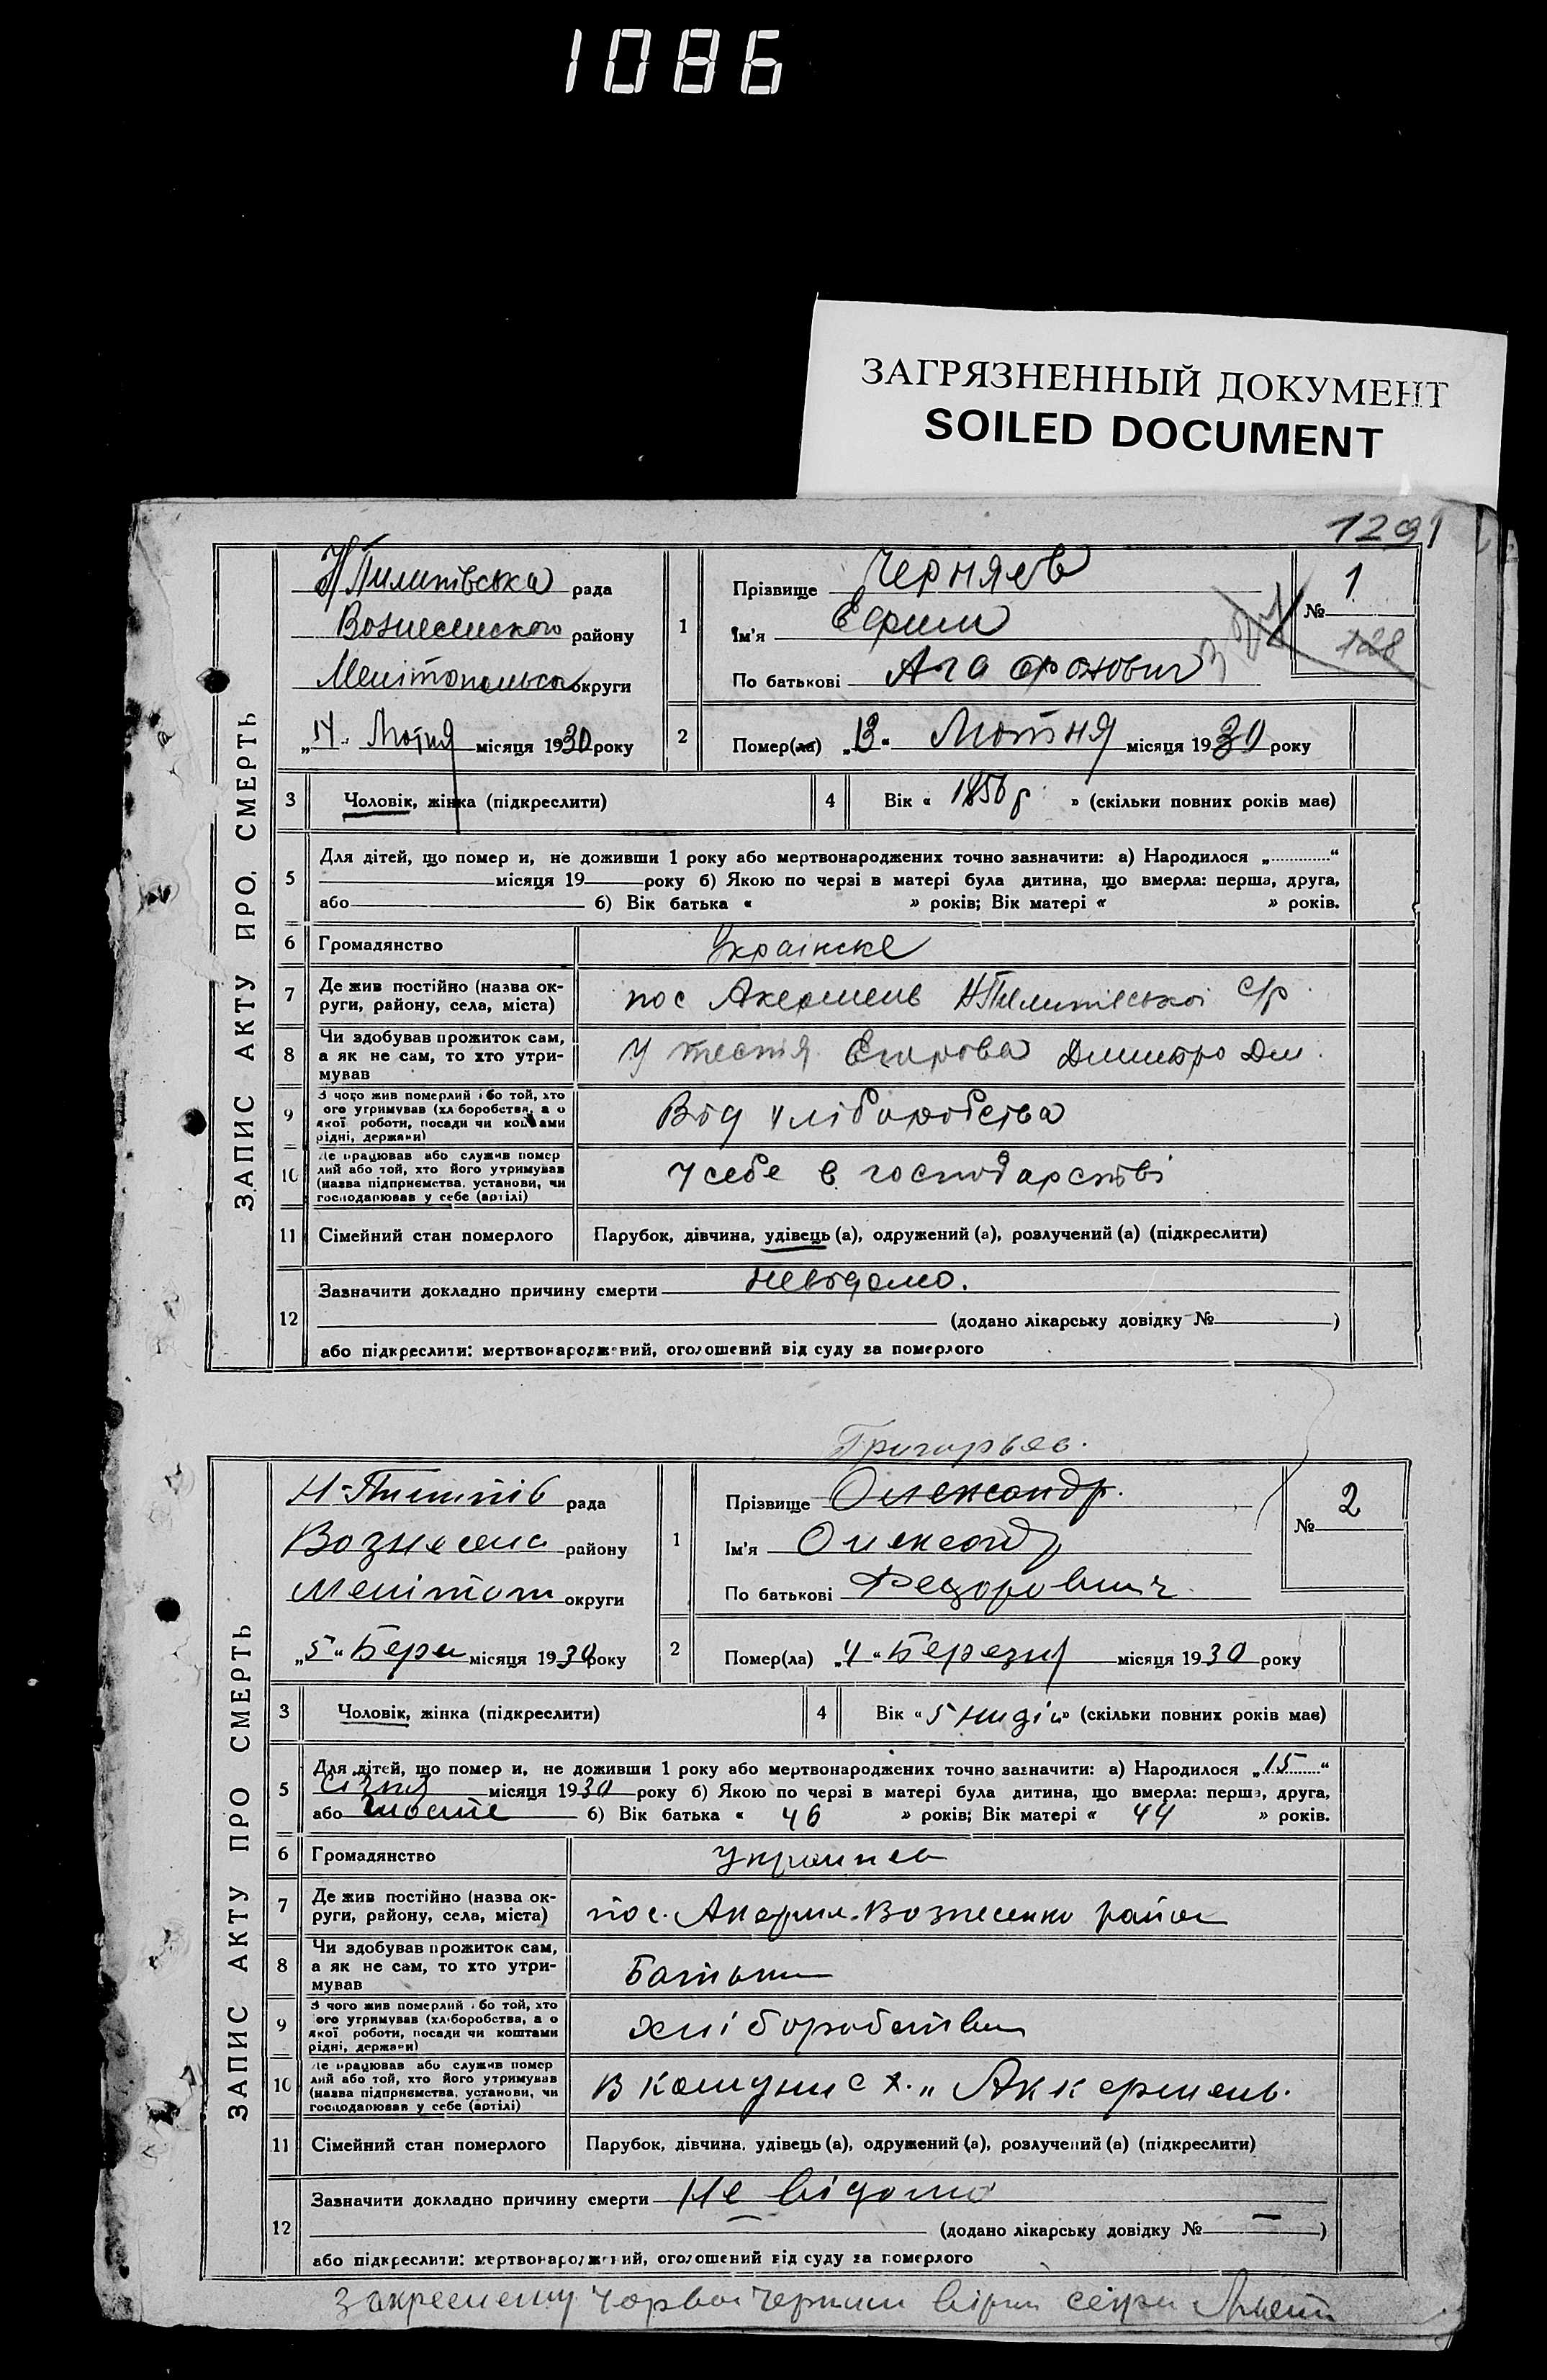 1086
ЗАГРЯЗНЕННЫЙ ДОКУМЕНТ
SOILED DOCUMENT
1291
ЗАПИС АКТУ ПРО СМЕРТЬ
рада
Вознесенского району
округи
„14" Лютня місяця 1930 року
1
Прізвище Черняев
Ім'я Ефим
По батькові Агафонович
№ 1
128
2
Помер(ла) „13" Лютня місяця 1930 року
3
Чоловік, жінка (підкреслити)
4
Вік « 1856 р » (скільки повних років мав)
5
Для дітей, що помер и, не доживши 1 року або мертвонароджених точно зазначити: а) Народилося „............"
місяця 19 року б) Якою по черзі в матері була дитина, що вмерла: перша, друга,
або б) Вік батька « » років; Вік матері « » років.
6
Громадянство
Украінске
7
Де жив постійно (назва ок-
руги, району, села, міста)
пос Акермень с/р
8
Чи здобував прожиток сам,
а як не сам, то хто утри-
мував
У тестя Дмитро Дм.
9
З чого жив померлий або той, хто
ого утримував (хл боробства, а о
якої роботи, посади чи коштами
рідні, держави)
Від хліборобства
10
Де працював або служив помер
лий або той, хто його утримував
(назва підприємства, установи, чи
господарював у себе (артілі)
У себе в господарстві
11
Сімейний стан померлого
Парубок, дівчина, удівець (а), одружений (а), розлучений (а) (підкреслити)
12
Зазначити докладно причину смерти невідомо.
(додано лікарську довідку № )
або підкреслити: мертвонароджений, оголошений від суду за померлого
Григорьев.
ЗАПИС АКТУ ПРО СМЕРТЬ
рада
району
Мелітоп округи
„5" Бере місяця 1930 року
1
Прізвище Олександр.
Ім'я Олександр
По батькові Федорович
№ 2
2
Помер(ла) „4" Березня місяця 1930 року
3
Чоловік, жінка (підкреслити)
4
Вік « 5 нидін » (скільки повних років мав)
5
Для дітей, що помер и, не доживши 1 року або мертвонароджених точно зазначити: а) Народилося „15"
Січня місяця 1930 року б) Якою по черзі в матері була дитина, що вмерла: перша, друга,
або б) Вік батька « 46 » років; Вік матері « 44 » років.
6
Громадянство
7
Де жив постійно (назва ок-
руги, району, села, міста)
пос. Акерм. Вознесенко район
8
Чи здобував прожиток сам,
а як не сам, то хто утри-
мував
Батьки
9
З чого жив померлий або той, хто
ого утримував (хл боробства, а о
якої роботи, посади чи коштами
рідні, держави)
хліборобства
10
Де працював або служив помер
лий або той, хто його утримував
(назва підприємства, установи, чи
господарював у себе (артілі)
В „Аккермень.
11
Сімейний стан померлого
Парубок, дівчина, удівець (а), одружений (а), розлучений (а) (підкреслити)
12
Зазначити докладно причину смерти Не відомо
(додано лікарську довідку № — )
або підкреслити: мертвонароджений, оголошений від суду за померлого